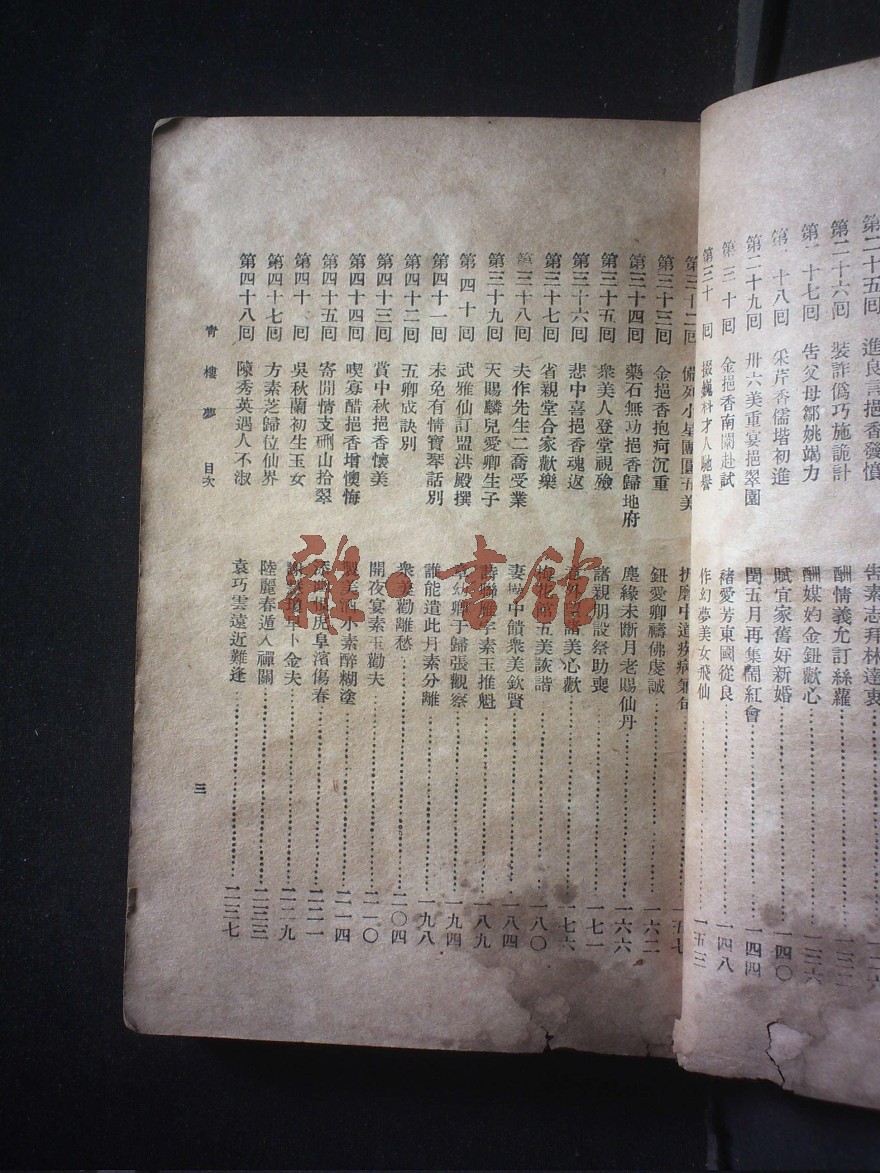 第二十五回 進良言挹香發憤 告素志拜林達衷
第二十六回 裝詐僞巧施詭計 酬情義允訂絲蘿 一三二
十七回 告父母鄒姚竭力 酬媒妁金鈕歡心 一三六
十八回 采芹香儒堦初進 賦宜家舊好新婚 一四〇
第二十九回 卅六美重宴挹翠園 閏五月再集鬧紅會 一四四
第三十回 金挹香南闈赴試 褚愛芳東國從良 一四八
第三十回 掇巍科才人馳譽 作幻夢美女飛仙 一五三
第三十二回 備列小星團圓五美 折磨中道疾病兼旬 一五七
第三十三回 金挹香抱疴沉重 鈕愛卿禱佛虔誠 一六二
第三十四回 藥石無功挹香歸地府 塵緣未斷月老賜仙丹 一六六
第三十五回 衆美人登堂視殮 諸親朋設祭助喪 一七一
第三十六回 悲中喜挹香魂返 諸美心歡 一七六
第三十七回 省親堂合家歡樂 五美詼諧 一八〇
第三十八回 夫作先生二喬受業 妻 中饋衆美欽賢 一八四
第三十九回 天賜麟兒愛卿生子 詩聯 字素玉推魁 一八九
第四十回 武雅仙訂盟洪殿撰 章幼卿于歸張觀察 一九四
第四十一回 未免有情寶琴話別 誰能遣此月素分離 一九八
第四十二回 五卿成訣別 衆美勸離愁 二〇四
第四十三回 賞中秋挹香懷美 開夜宴素玉勸夫 二一〇
第四十四回 喫寡酷挹香增懊悔 製美酒小素醉糊塗 二一四
第四十五回 寄閒情支硎山拾翠 深 恨虎阜濱傷春 二二一
第四十回 吳秋蘭初生玉女 謝 瓊早卜金夫 二二九
第四十七回 方素芝歸位仙界 陸麗春遁入禪關 二三三
第四十八回 陳秀英遇人不淑 袁巧雲遠近難逢 二三七
青樓夢 目次
三
雜·書館